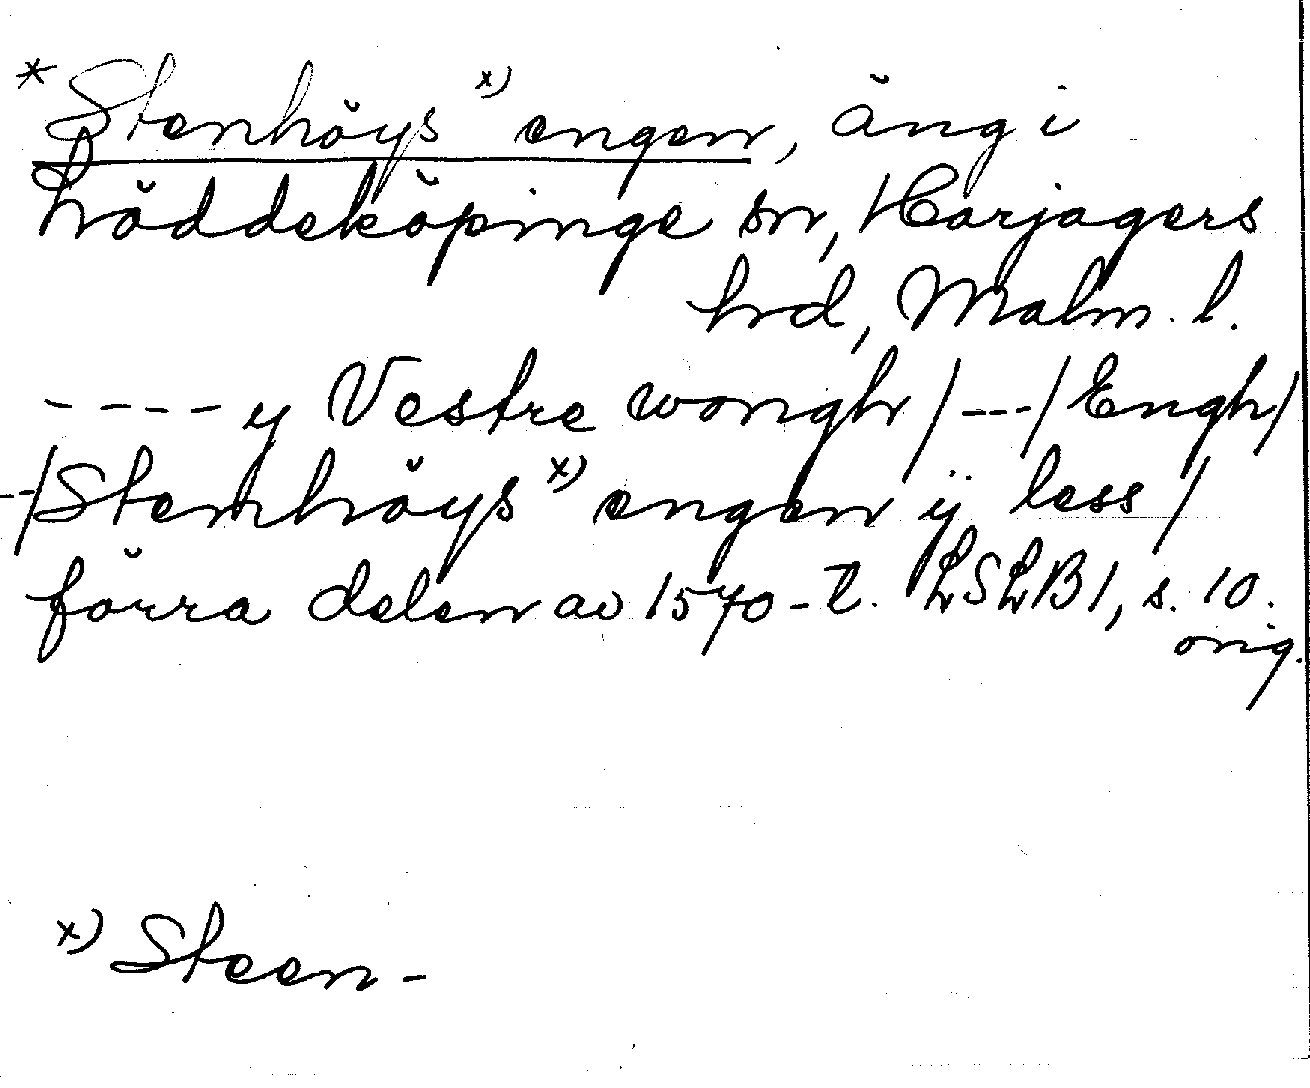 * Stenhöys x) engen, äng i
Löddeköpinge sn, Harjagers
hrd, Malm. l.
- - - - y Vestre wongh / --- / Engh /
-- / Stenhöys x) engen ij less /
förra delen av 1570-t. LSLB 1, s. 10.
orig.
x) Steen-